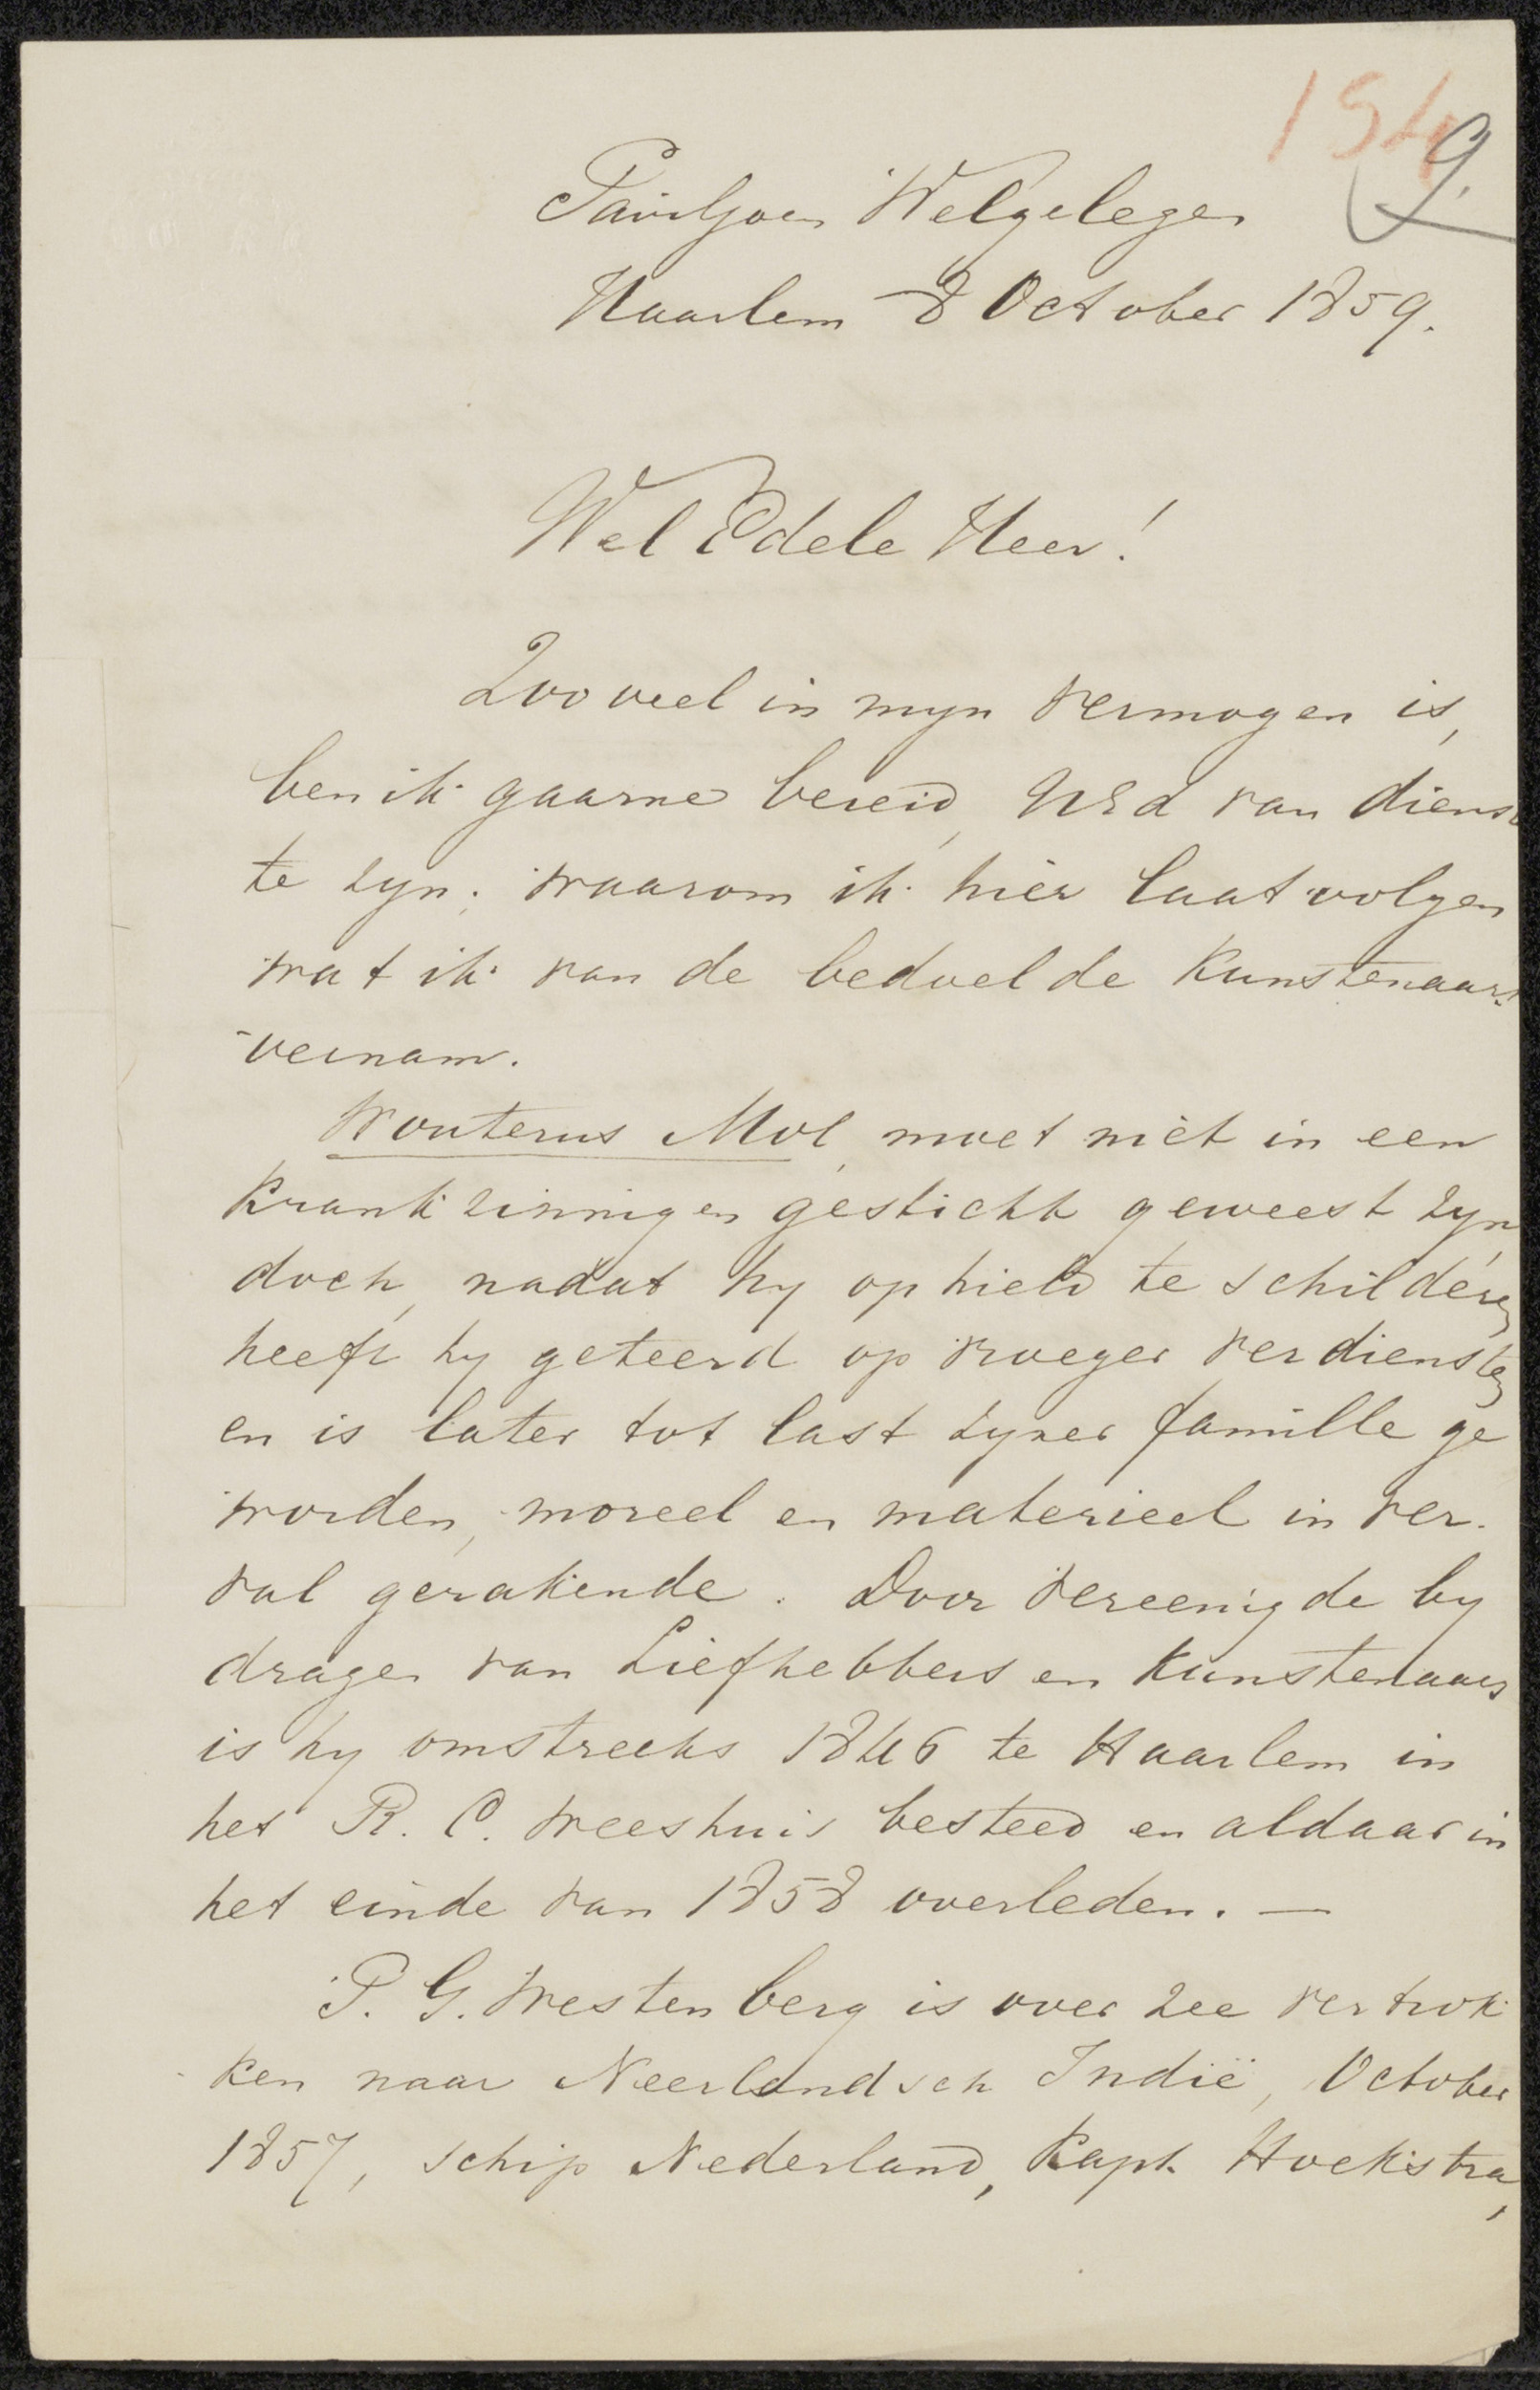 154
9.
Paviljoen Welgelegen
Haarlem 8 October 1859.
Wel Edele Heer!
Zoo veel in myn vermogen is,
ben ik gaarne bereid, UEd van dienst
te zyn; waarom ik hier laat volgen
wat ik van de bedoelde Kunstenaars
vernam.
Wouterus Mol, moet niet in een
Krankzinnigen gesticht geweest zyn
doch, nadat hy ophield te schilderen
heeft hy geteerd op vroeger verdiensten
en is later tot last zyner famille ge
worden, moreel en materieel in ver-
val gerakende. Door vereenigde by
dragen van Liefhebbers en Kunstenaars
is hy omstreeks 1846 te Haarlem in
het R. C. Weeshuis besteed en aldaar in
het einde van 1858 overleden. —
P. G. Westenberg is over zee vertrok
ken naar Neerlandsch Indië, October
1857, schip Nederland, Kapt. Hoekstra,